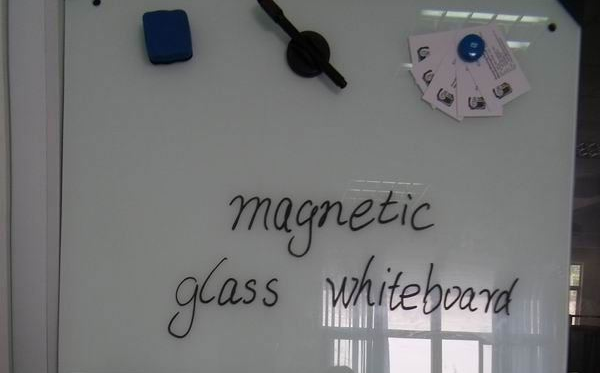 magnetic
glass whiteboard